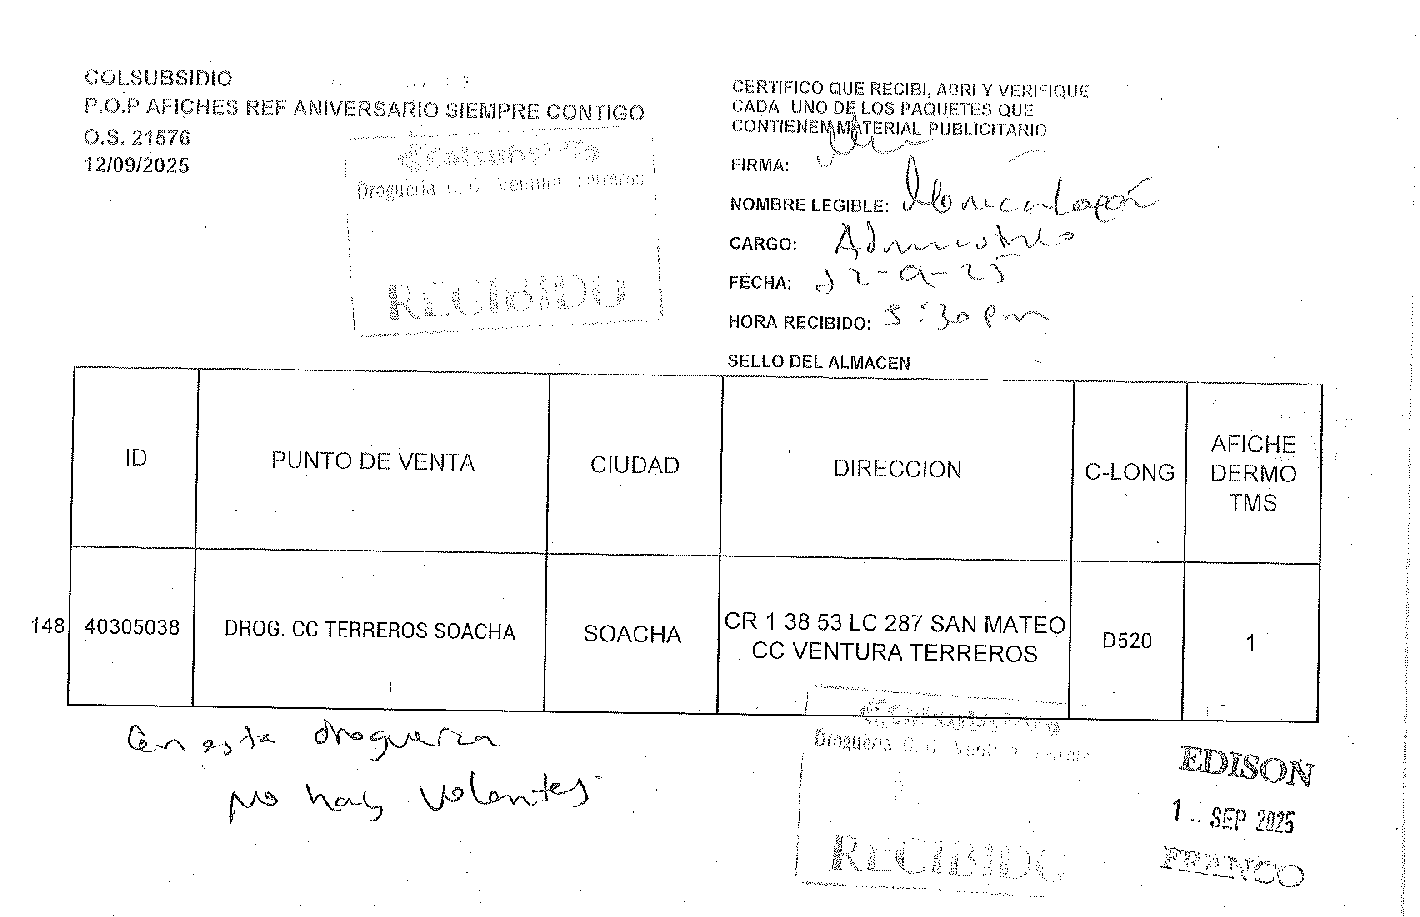 COLSUBSIDIO
P.O.P AFICHES REF ANIVERSARIO SIEMPRE CONTIGO
O.S. 21576
12/09/2025
Colsubsidio
Drogueria C.C. Ventura Terreros
RECIBIDO
CERTIFICO QUE RECIBI, ABRI Y VERIFIQUE
CADA UNO DE LOS PAQUETES QUE
CONTIENEN MATERIAL PUBLICITARIO
FIRMA:
NOMBRE LEGIBLE: Monica
CARGO:
FECHA: 12-9-25
HORA RECIBIDO: :30 pm
SELLO DEL ALMACEN
ID PUNTO DE VENTA CIUDAD DIRECCION C-LONG AFICHE DERMO TMS
148 40305038 DROG. CC TERREROS SOACHA SOACHA CR 1 38 53 LC 287 SAN MATEO CC VENTURA TERREROS D520 1
en esta drogueria
no hay volantes
Colsubsidio
Drogueria C.C. Ventura
RECIBIDO
EDISON
1 SEP 2025
FRANCO